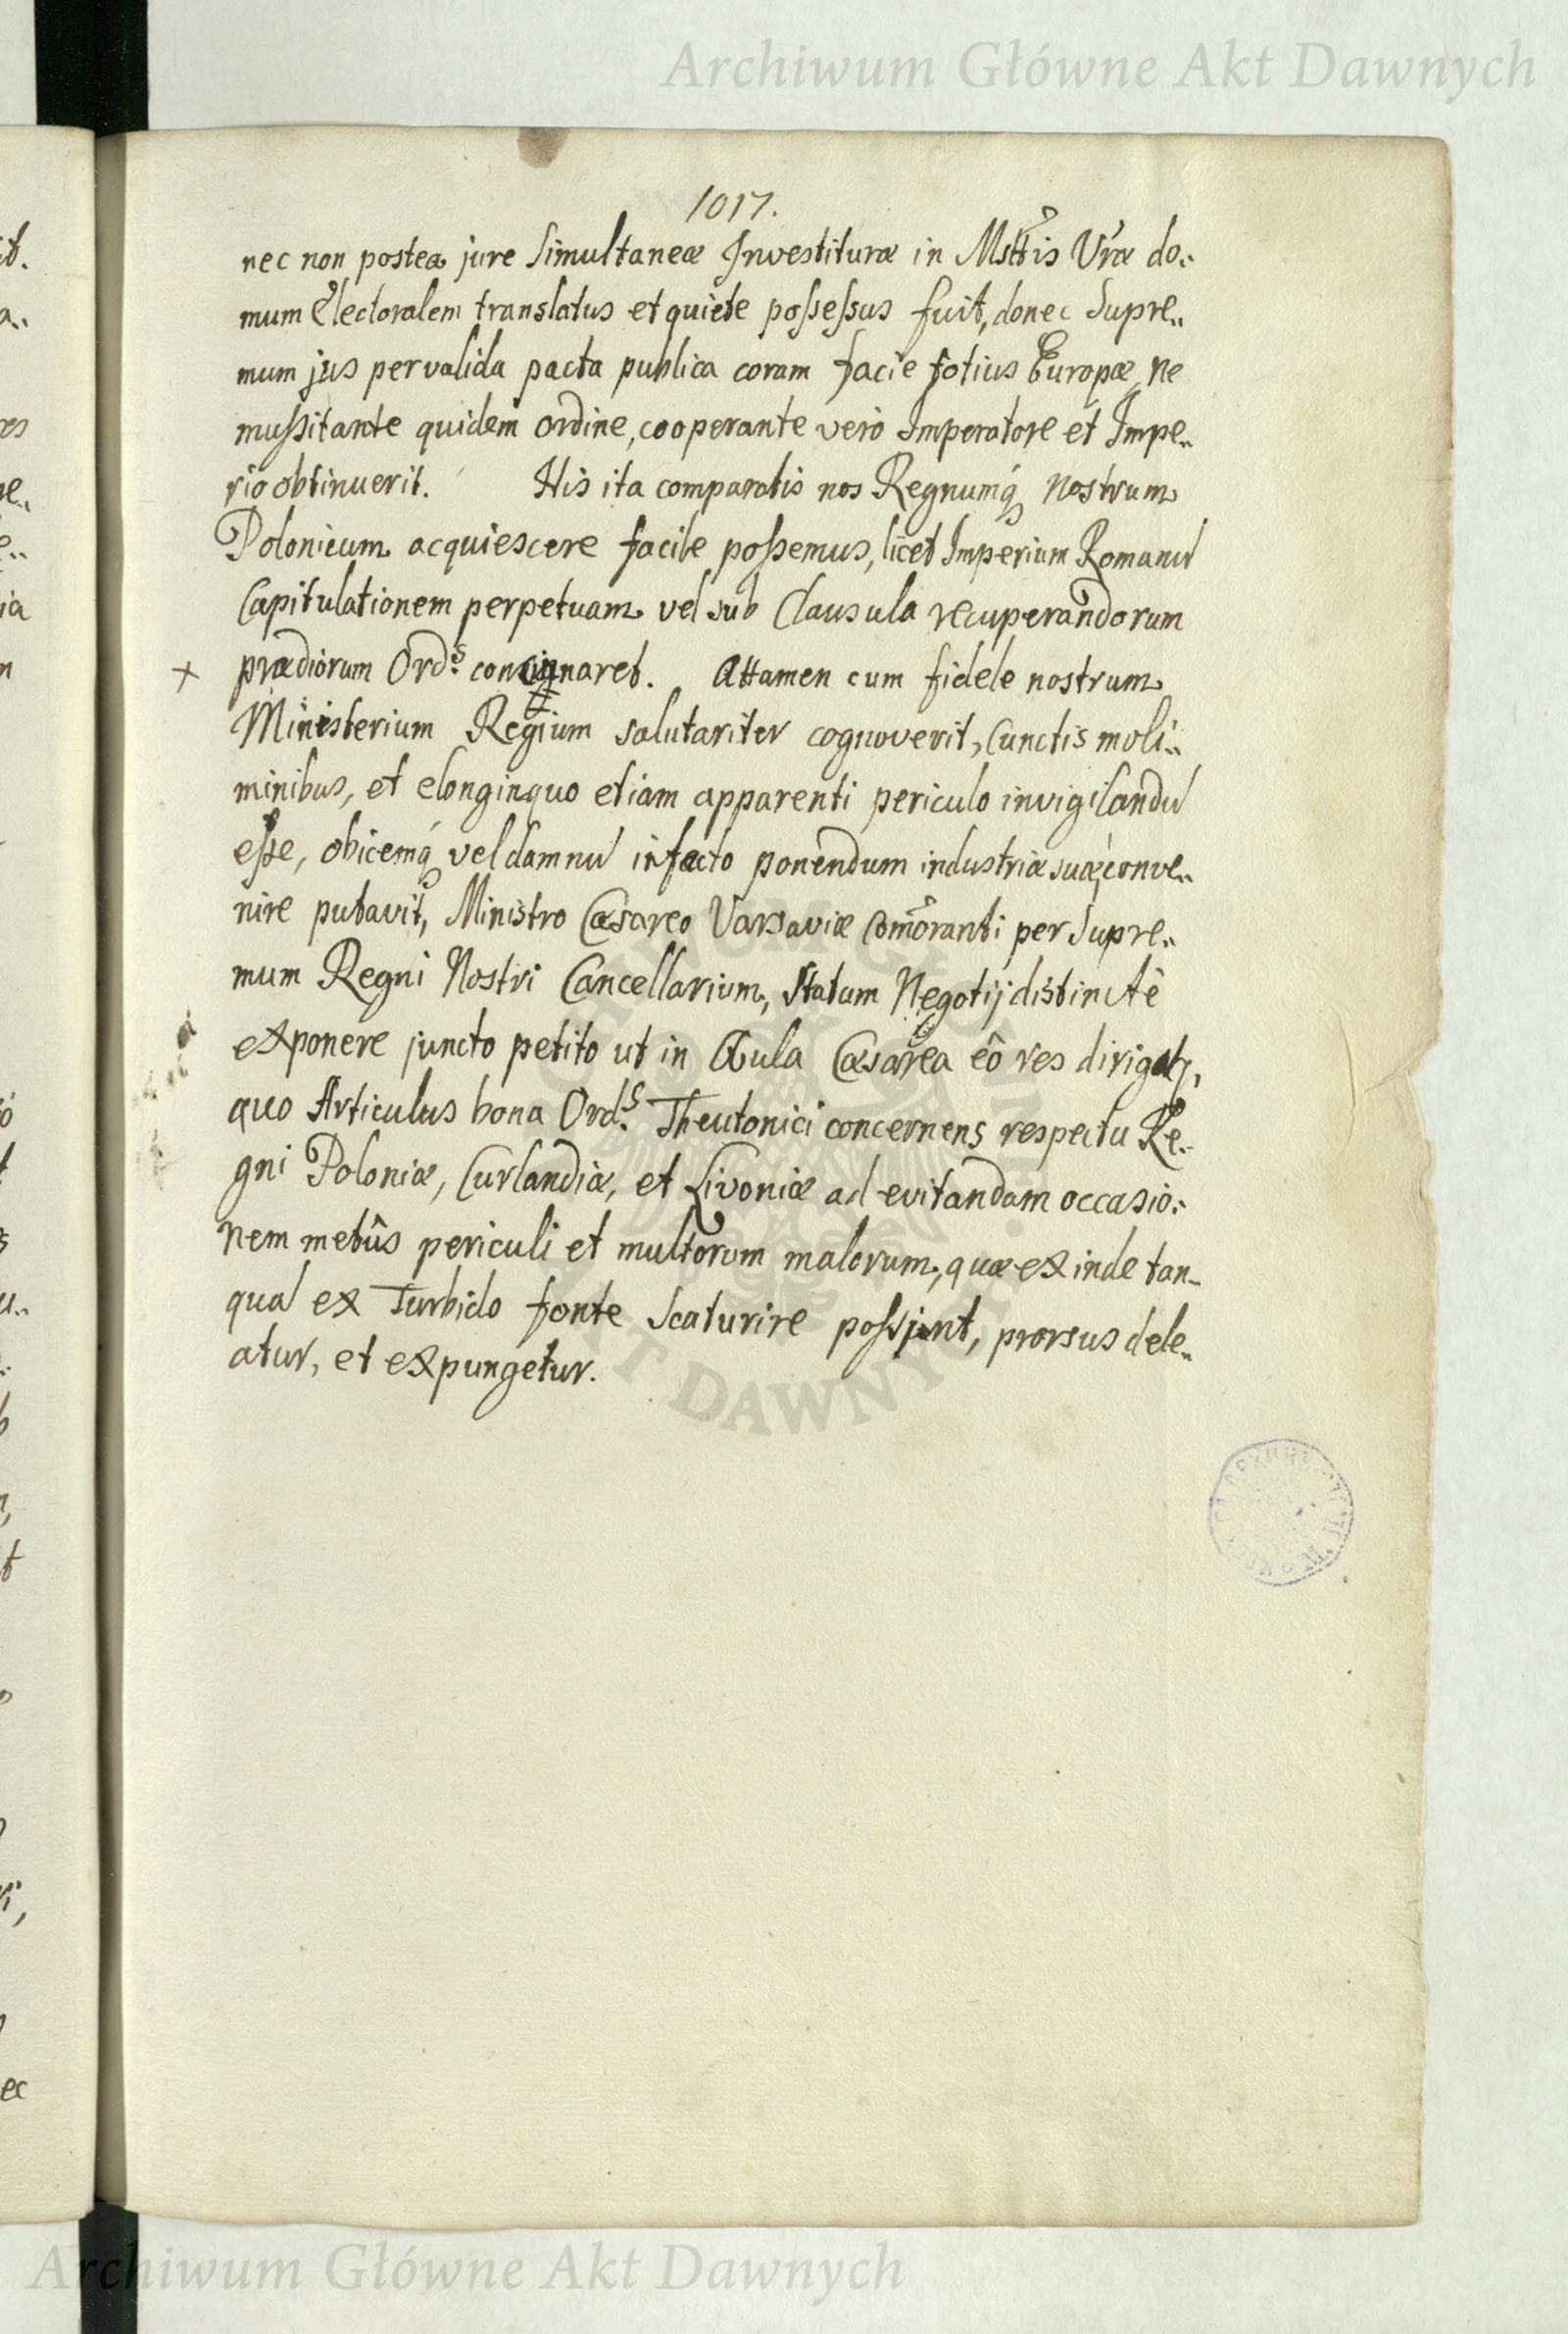 Archiwum Główne Akt Dawnych
1017.
nec non postea jure Simultaneæ Investituræ in Msttis Vræ do:
mum Electoralem translatus et quiete possessus fuit, donec Supre„
mum jus per valida pacta publica coram facie totius Europæ, ne
mussitante quidem ordine, cooperante verò Imperatore et Impe„
rio obtinuerit. His ita comparatis nos Regnumq́ Nostrum
Polonicum acquiescere facile possemus, licet Imperium Romanū
Capitulationem perpetuam vel sub Clausula recuperandorum
+ prædiorum Ord:s concinnaret. Attamen cum fidele nostrum
Ministerium Regium salutariter cognoverit, Cunctis moli„
minibus, et elonginquo etiam apparenti periculo invigilandū
esse, obicemq́ vel damnū infecto ponendum industriæ suæ conve„
nire putavit, Ministro Cæsareo Varsaviæ Com̃oranti per Supre„
mum Regni Nostri Cancellarium, Statum Negotij distinctè
exponere juncto petito ut in Aula Cæsarea eô res dirigatʒ,
quo Articulus bona Ord:s Theutonici concernens respectu Re„
gni Poloniæ, Curlandiæ, et Livoniæ ad evitandam occasio:
nem metûs periculi et multorum malorum, quæ ex inde tan„
quā ex Turbido fonte scaturire possint, prorsus dele„
atur, et expungetur.
AKT DAWNYCH
Archiwum Główne Akt Dawnych